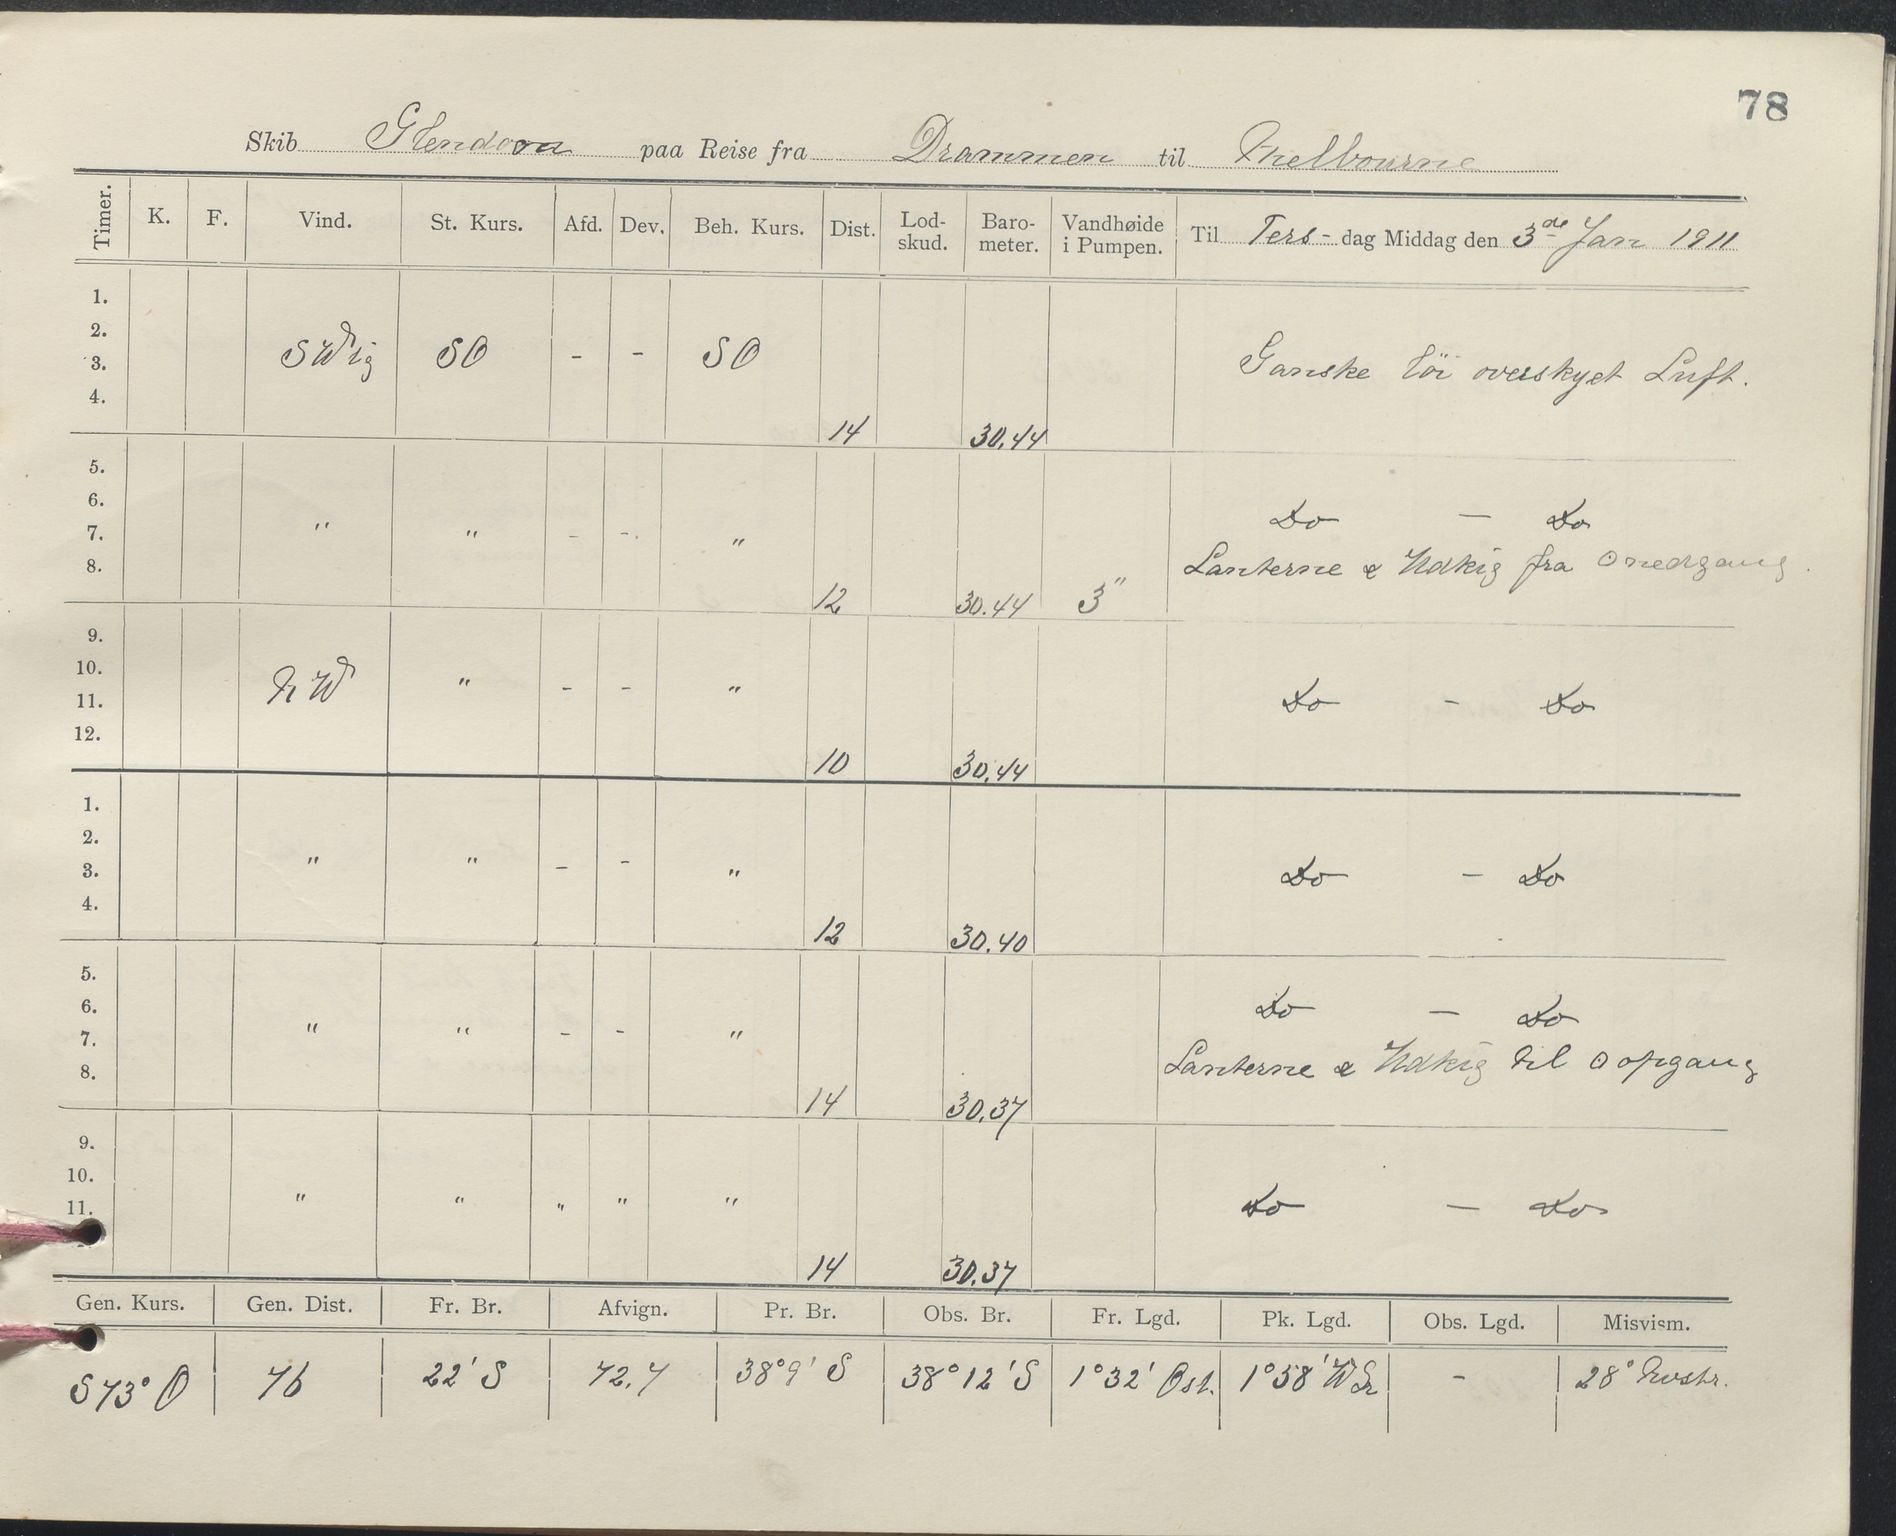 78
Skib Glendoon paa Reise fra Drammen til Melbourne
Timer. K. F. Vind. St. Kurs. Afd. Dev. Beh. Kurs. Dist. Lod-skud. Baro-meter. Vandhøide i Pumpen. Til Ters- dag Middag den 3de Jan 1911
1.
2.
3. SWlig SO - - SO Ganske löi overskyet Luft.
4.
14 30.44
5.
6. Do - Do
7. " " - - "
8. Lanterne & Udkig fra ☉nedgang.
12 30.44 3"
9.
10. NW " - - "
11. Do - Do
12.
10 30.44
1.
2.
3. " " - - " Do - Do
4.
12 30.40
5.
6. Do - Do
7. " " - - "
8. Lanterne & Udkig til ☉opgang
14 30.37
9.
10.
11. " " " " " Do - Do
14 30.37
Gen. Kurs. Gen. Dist. Fr. Br. Afvign. Pr. Br. Obs. Br. Fr. Lgd. Pk. Lgd. Obs. Lgd. Misvism.
S73°O 76 22' S 72.7 38°9' S 38°12' S 1°32' Ost. 1°58' W - 28°